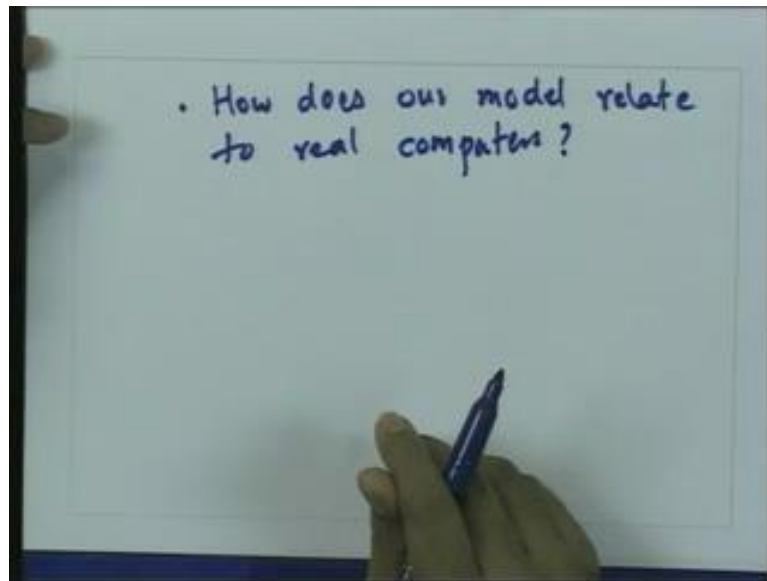 . How does our model relate
to real computers?